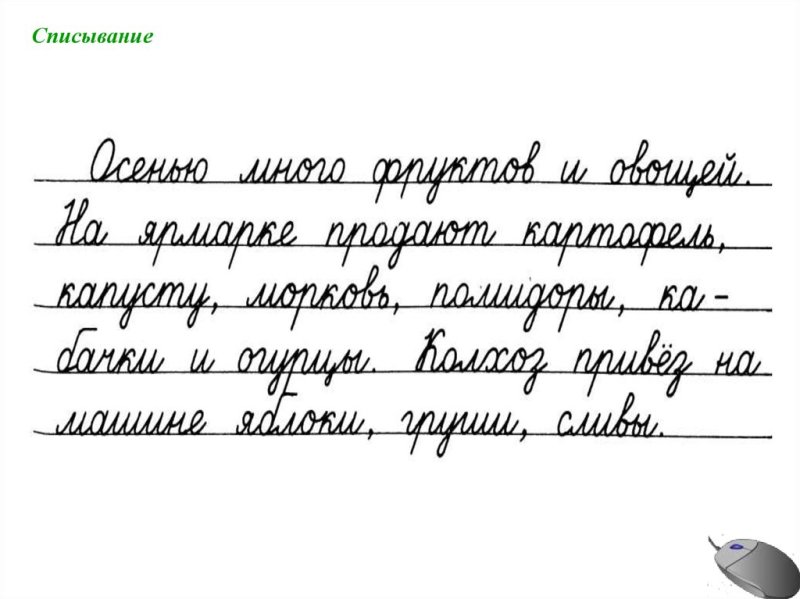 Списывание
Осенью много фруктов и овощей.
На ярмарке продают картофель,
капусту, морковь, помидоры, ка-
бачки и огурцы. Колхоз привёз на
машине яблоки, груши, сливы.